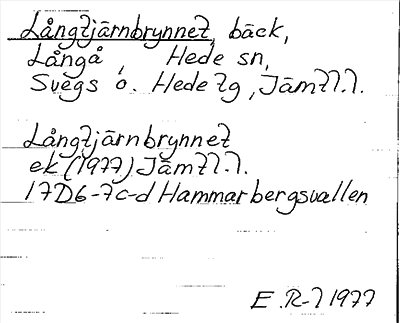 Långtjärnbrynnet, bäck,
Långå, Hede sn,
Svegs o. Hede tg, Jämtl.l.
Långtjärnbrynnet
ek (1977) Jämtl.l.
17D6-7c-d Hammarbergsvallen
E.R-l 1977